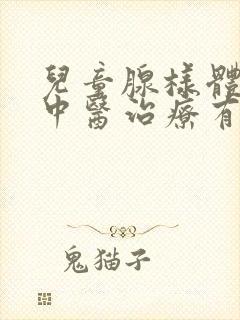 兒童腺樣體
中醫治療有
鬼猫子